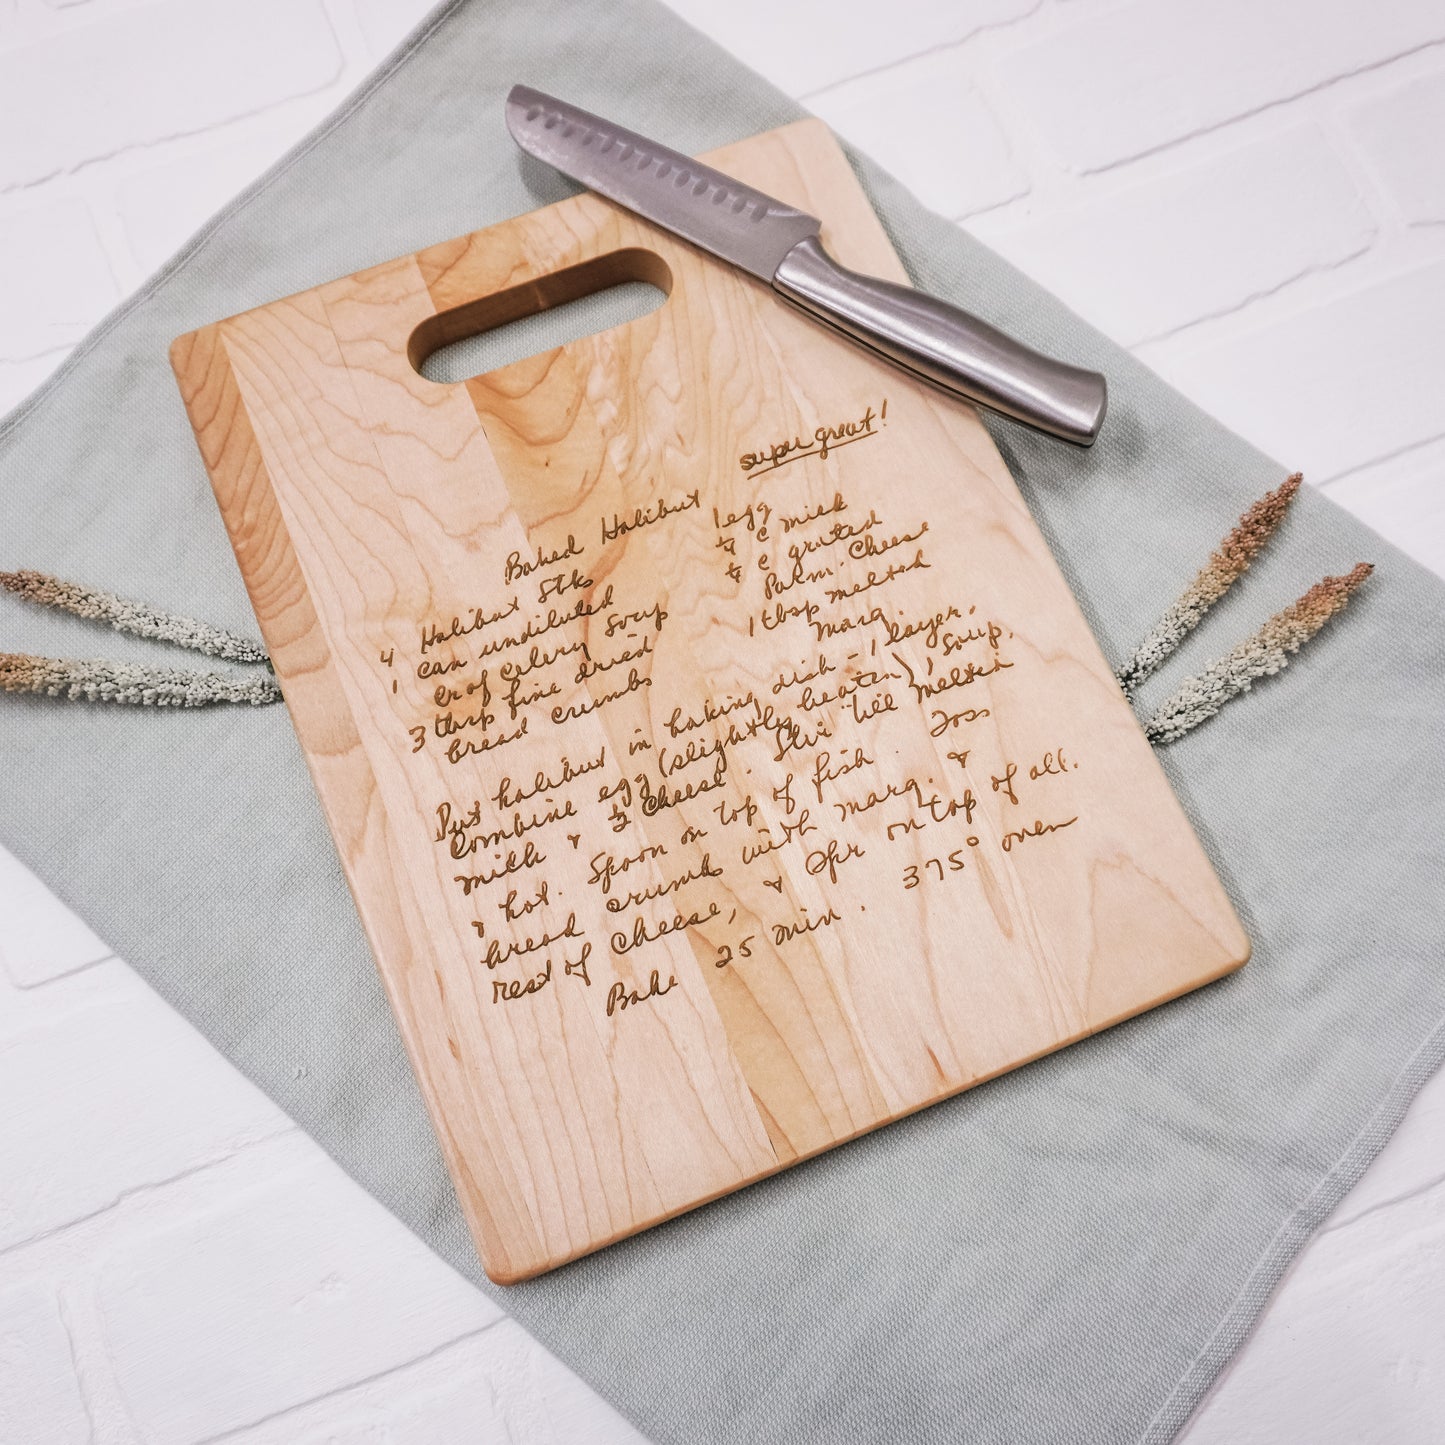 super great!
Baked Halibut
4 Halibut Stks
1 can undiluted
cr of celery soup
3 tbsp fine dried
bread crumbs
1 egg
1/4 c milk
1/4 c grated
Parm. Cheese
1 tbsp melted
marg.
Put halibut in baking dish - 1 layer.
Combine egg (slightly beaten), soup,
milk & 1/2 cheese. Stir till melted
& hot. Spoon on top of fish. Toss
bread crumbs with marg. &
rest of cheese, & spr on top of all.
Bake 25 min. 375° oven